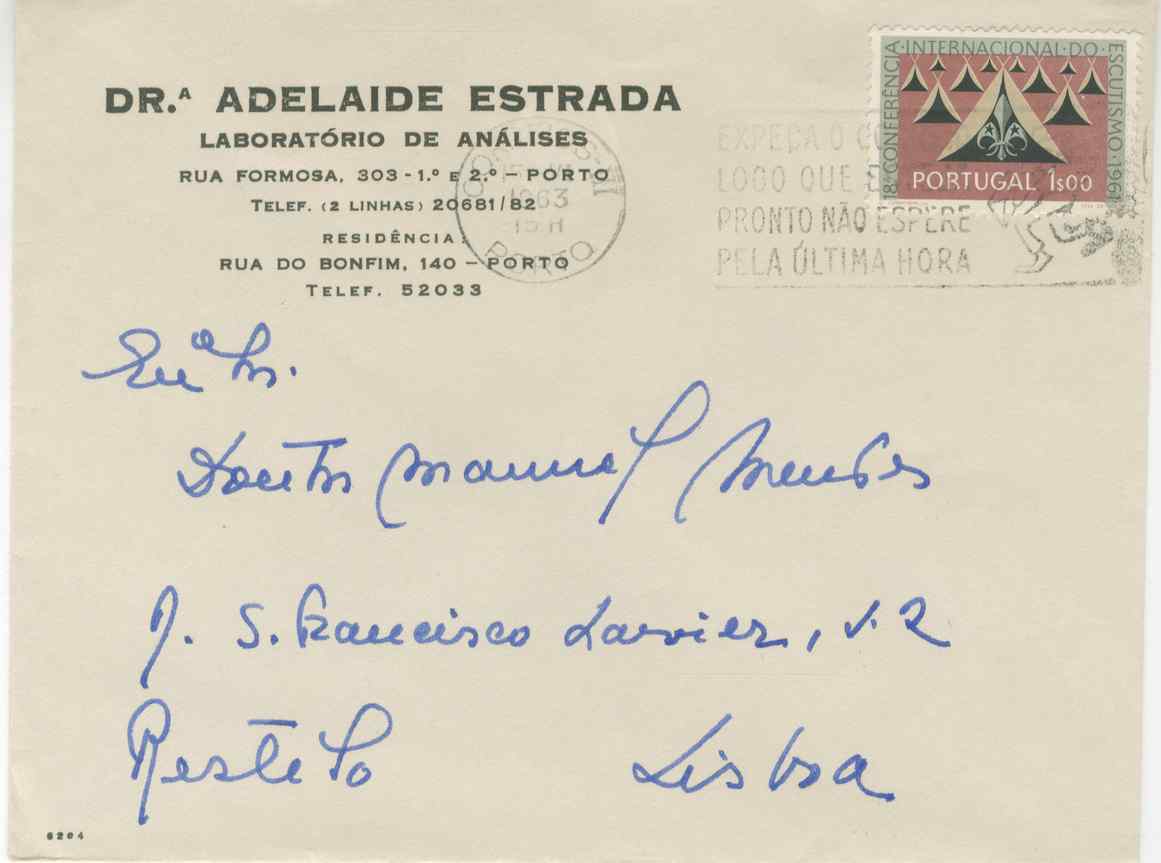 DR.ª ADELAIDE ESTRADA
LABORATÓRIO DE ANÁLISES
RUA FORMOSA, 303 - 1.º E 2.º - PORTO
TELEF. (2 LINHAS) 20681/82
RESIDÊNCIA:
RUA DO BONFIM, 140 - PORTO
TELEF. 52033
1963
PORTO
EXPEÇA O
LOGO QUE
PRONTO NÃO ESPERE
PELA ÚLTIMA HORA
18ª CONFERÊNCIA · INTERNACIONAL · DO · ESCUTISMO · 1961
PORTUGAL 1$00
Doutor Manuel Mendes
R. S. Francisco Xavier, 
Restelo Lisboa
6204